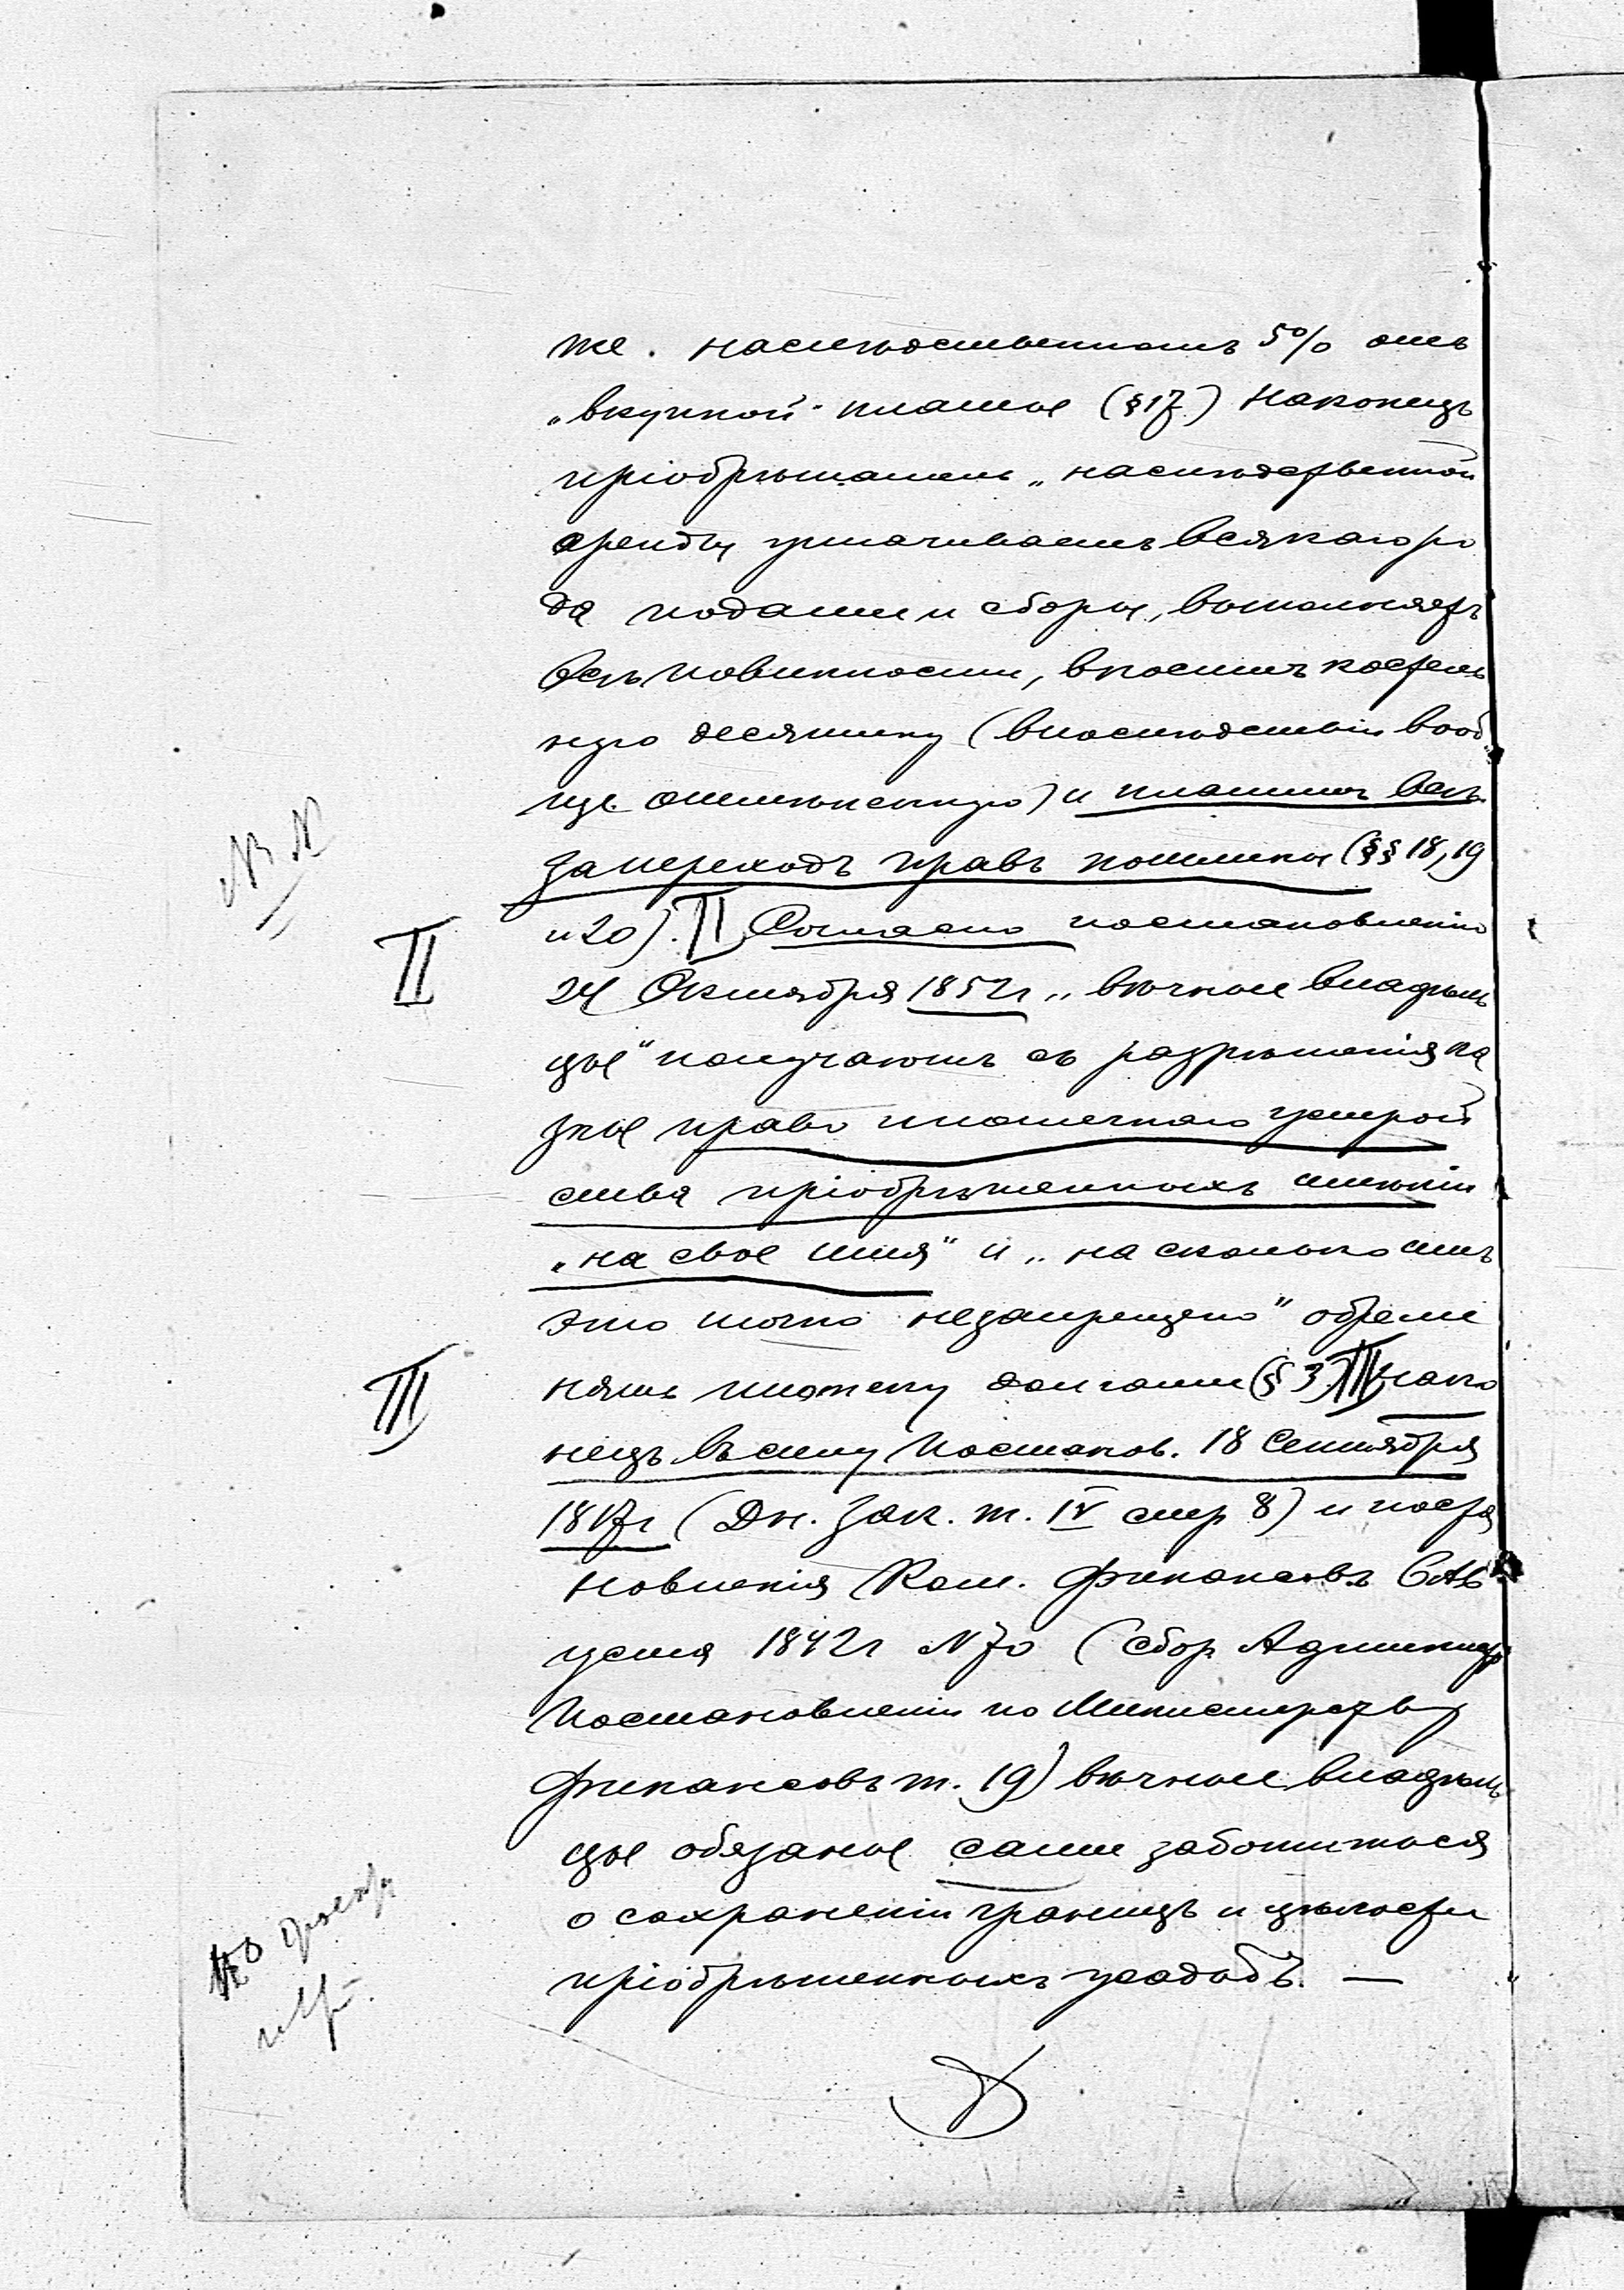 же. наслѣдственномъ 5% отъ
„вкупной" платы (§ 17) Наконецъ
пріобрѣтатель „наслѣдственной
аренды уплачиваетъ всякаго ро
да подати и сборы, выполняетъ
всѣ повинности, вноситъ костель
ную десятину (впослѣдствіи вооб
ще отмѣненную) и платитъ всѣ
за переходъ правъ пошлины (§§ 18, 19
NB N
и 20). II Согласно постановленію
II
24 Октября 1852г „вѣчные владѣль
цы" получаютъ съ разрѣшенія ка
зны право ипотечнаго устрой
ства пріобрѣтенныхъ имѣній
„на свое имя" и „на сколько имъ
это точно незапрещено" обреме
нять ипотеку долгами (§ 3) III Нако
III
нецъ въ силу Постанов. 18 Сентября
1817г (Дн. Зак. т. IV стр 8) и поста
новленія Ком. Финансовъ 6 Ав
густа 1842г N 70 (Сбор. Админист
Постановленій по Министерству
Финансовъ т. 19) вѣчные владѣль
цы обязаны сами заботиться
о сохраненіи границъ и цѣлости
пріобрѣтенныхъ усадьбъ. —